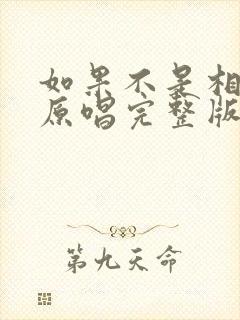 如果不是相
原唱完整版
第九天命